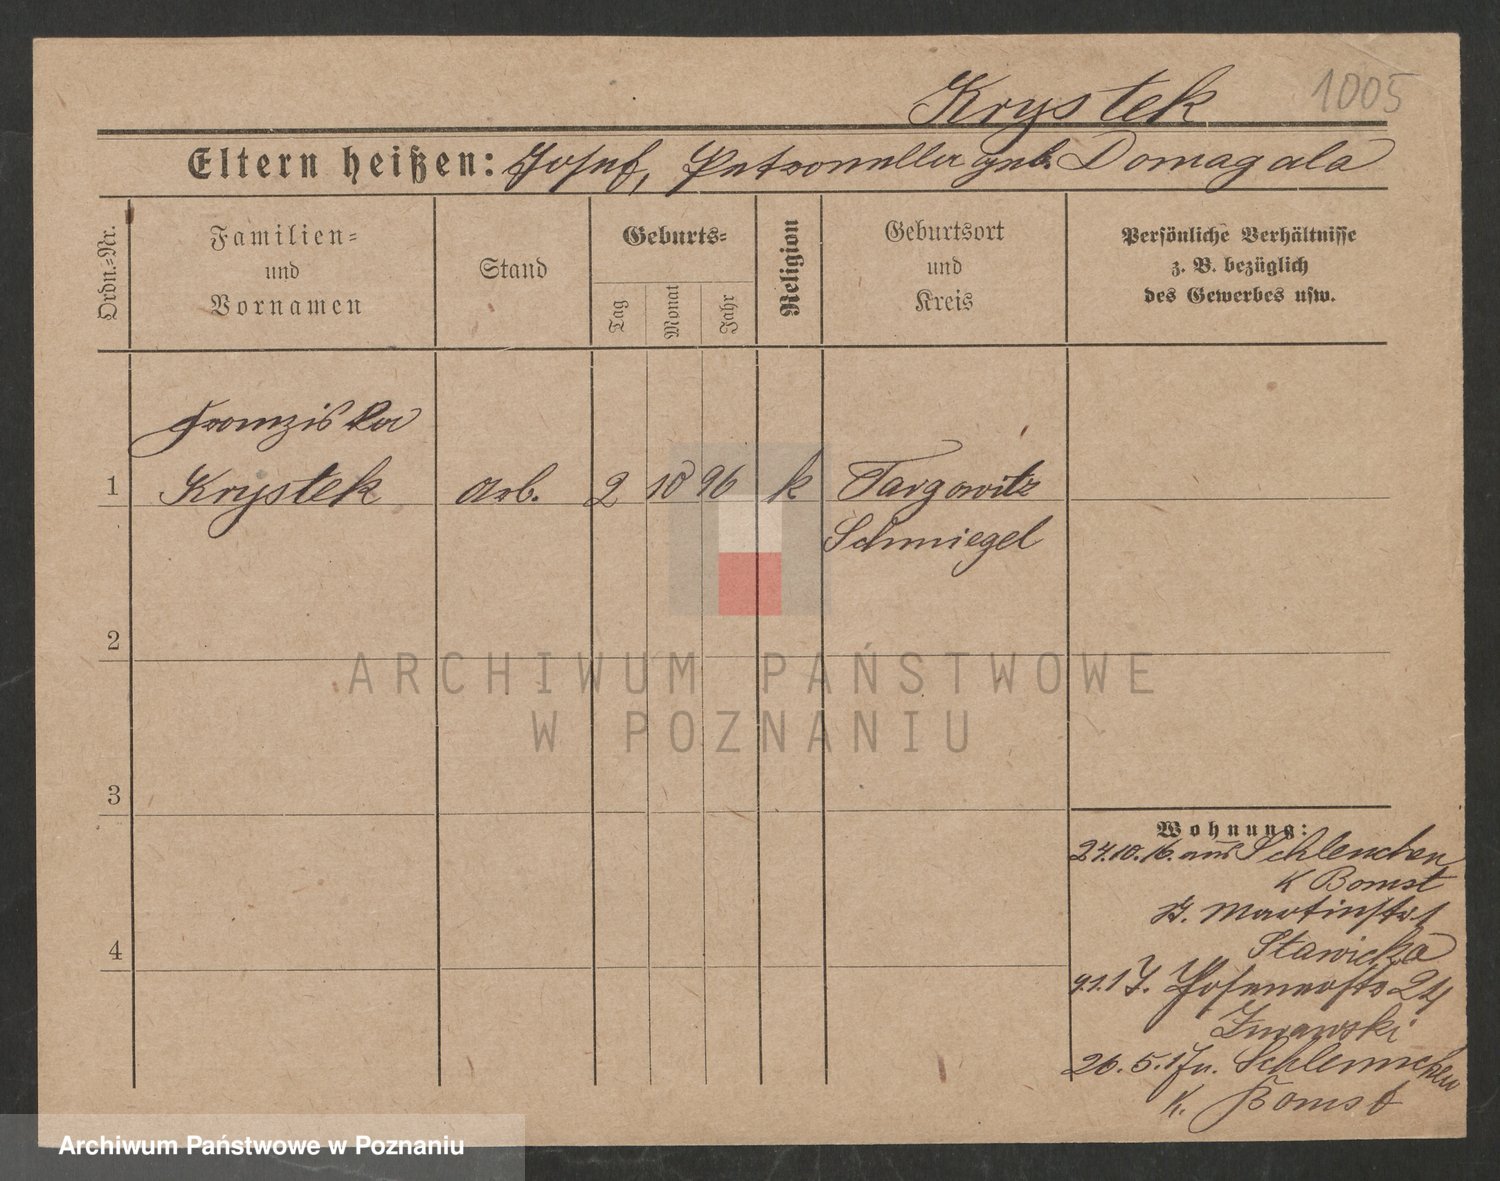 Krystek 1005
Eltern heißen: Josef, Petronella geb. Domagala
Ordn.=Nr.
Familien=
und
Vornamen
Stand
Geburts=
Tag
Monat
Jahr
Religion
Geburtsort
und
Kreis
Persönliche Verhältnisse
z. B. bezüglich
des Gewerbes usw.
Franziska
1 Krystek Arb. 2 10 96 k Targowitz
Schmiegel
2
ARCHIWUM PAŃSTWOWE
W POZNANIU
3
Wohnung:
27.10.16. aus Schleuchen
K Bomst
St. Martinstr 1
Stawicka
9.1.17. Posenerstr 24
Zurawski
26.5.17 n. Schleunchen
K. Bomst
4
Archiwum Państwowe w Poznaniu